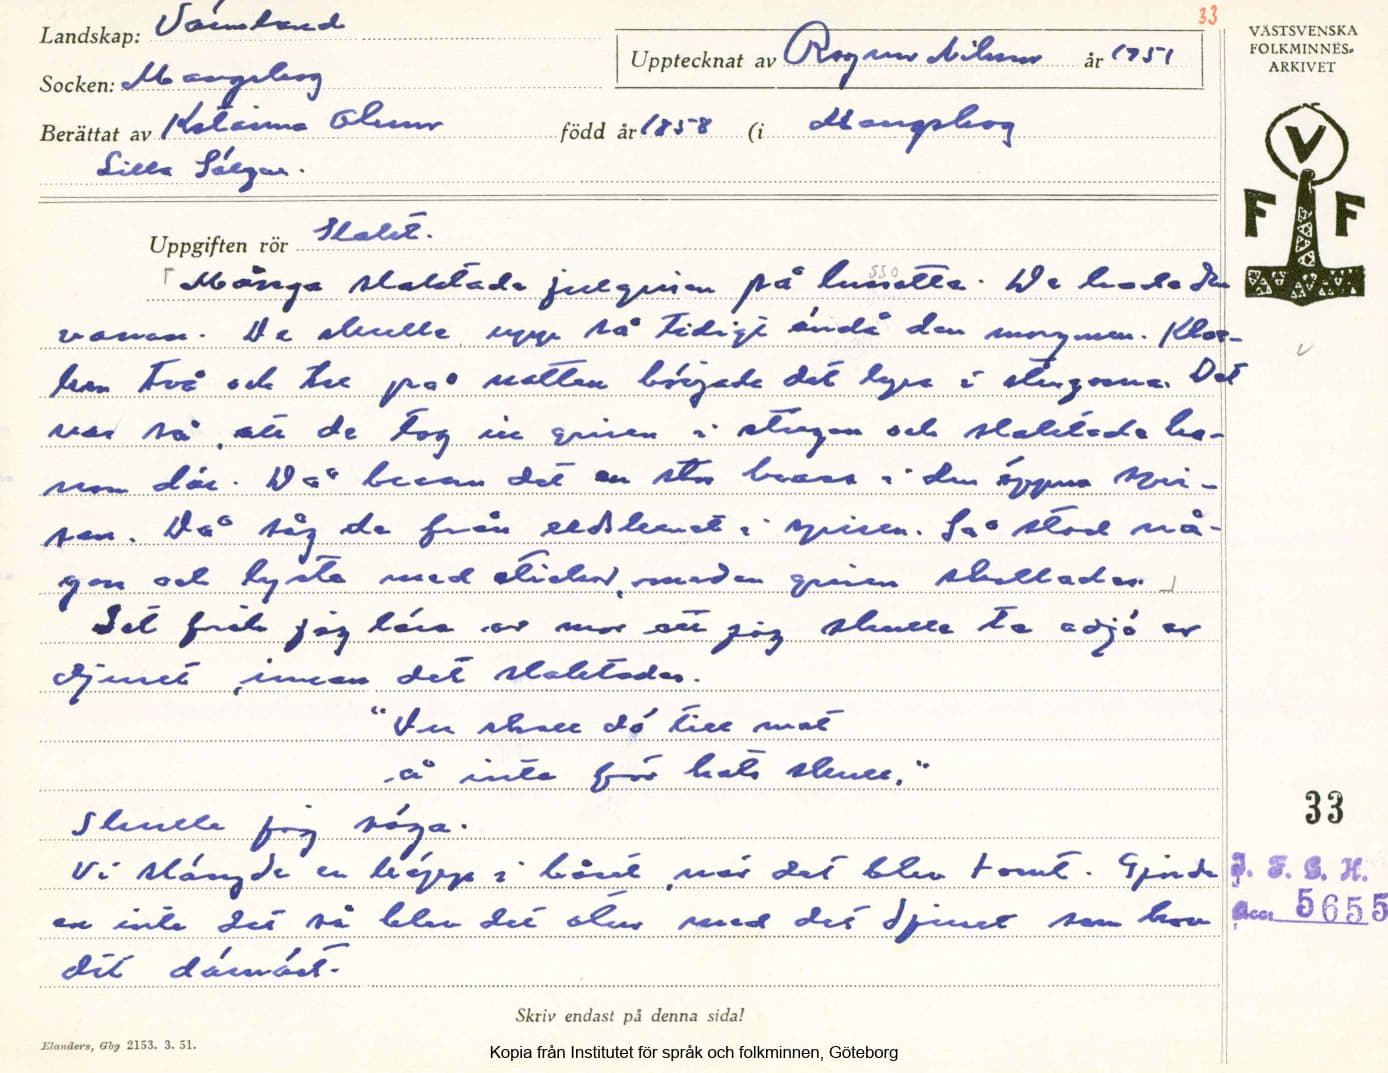 33
Landskap: Värmland
Upptecknat av Ragnar Nilsson år 1951
Socken: Mangskog
Berättat av Katarina Olsson född år 1858 (i Mangskog
Lilla Sälgar.
VÄSTSVENSKA
FOLKMINNES-
ARKIVET
V
F F
Uppgiften rör Slakt.
Många slaktade julgrisen på lussotta. De hade den
vanan. De skulle upp så tidigt ändå den morgonen. Kloc-
kan två och tre på natten började det lysa i stugorna. Det
var så, att de tog in grisen i stugan och slaktade ho-
nom där. Då brann det en stor brasa i den öppna spi-
sen. Då såg de från eldskenet i spisen. Så stod nå-
gon och lyste med stickor, medan grisen skållades.
Det fick jag lära av mor att jag skulle ta adjö av
djuret, innan det slaktades.
"Du skall dö till mat
å inte för hats skull."
Skulle jag säga.
Vi slängde en käpp i båset, när det blev tomt. Gjorde
en inte det så blev det olur med det djuret som kom
dit därnäst.
33
I. F. G. H.
Acc. 5655
Skriv endast på denna sida!
Elanders, Gbg 2153. 3. 51.
Kopia från Institutet för språk och folkminnen, Göteborg